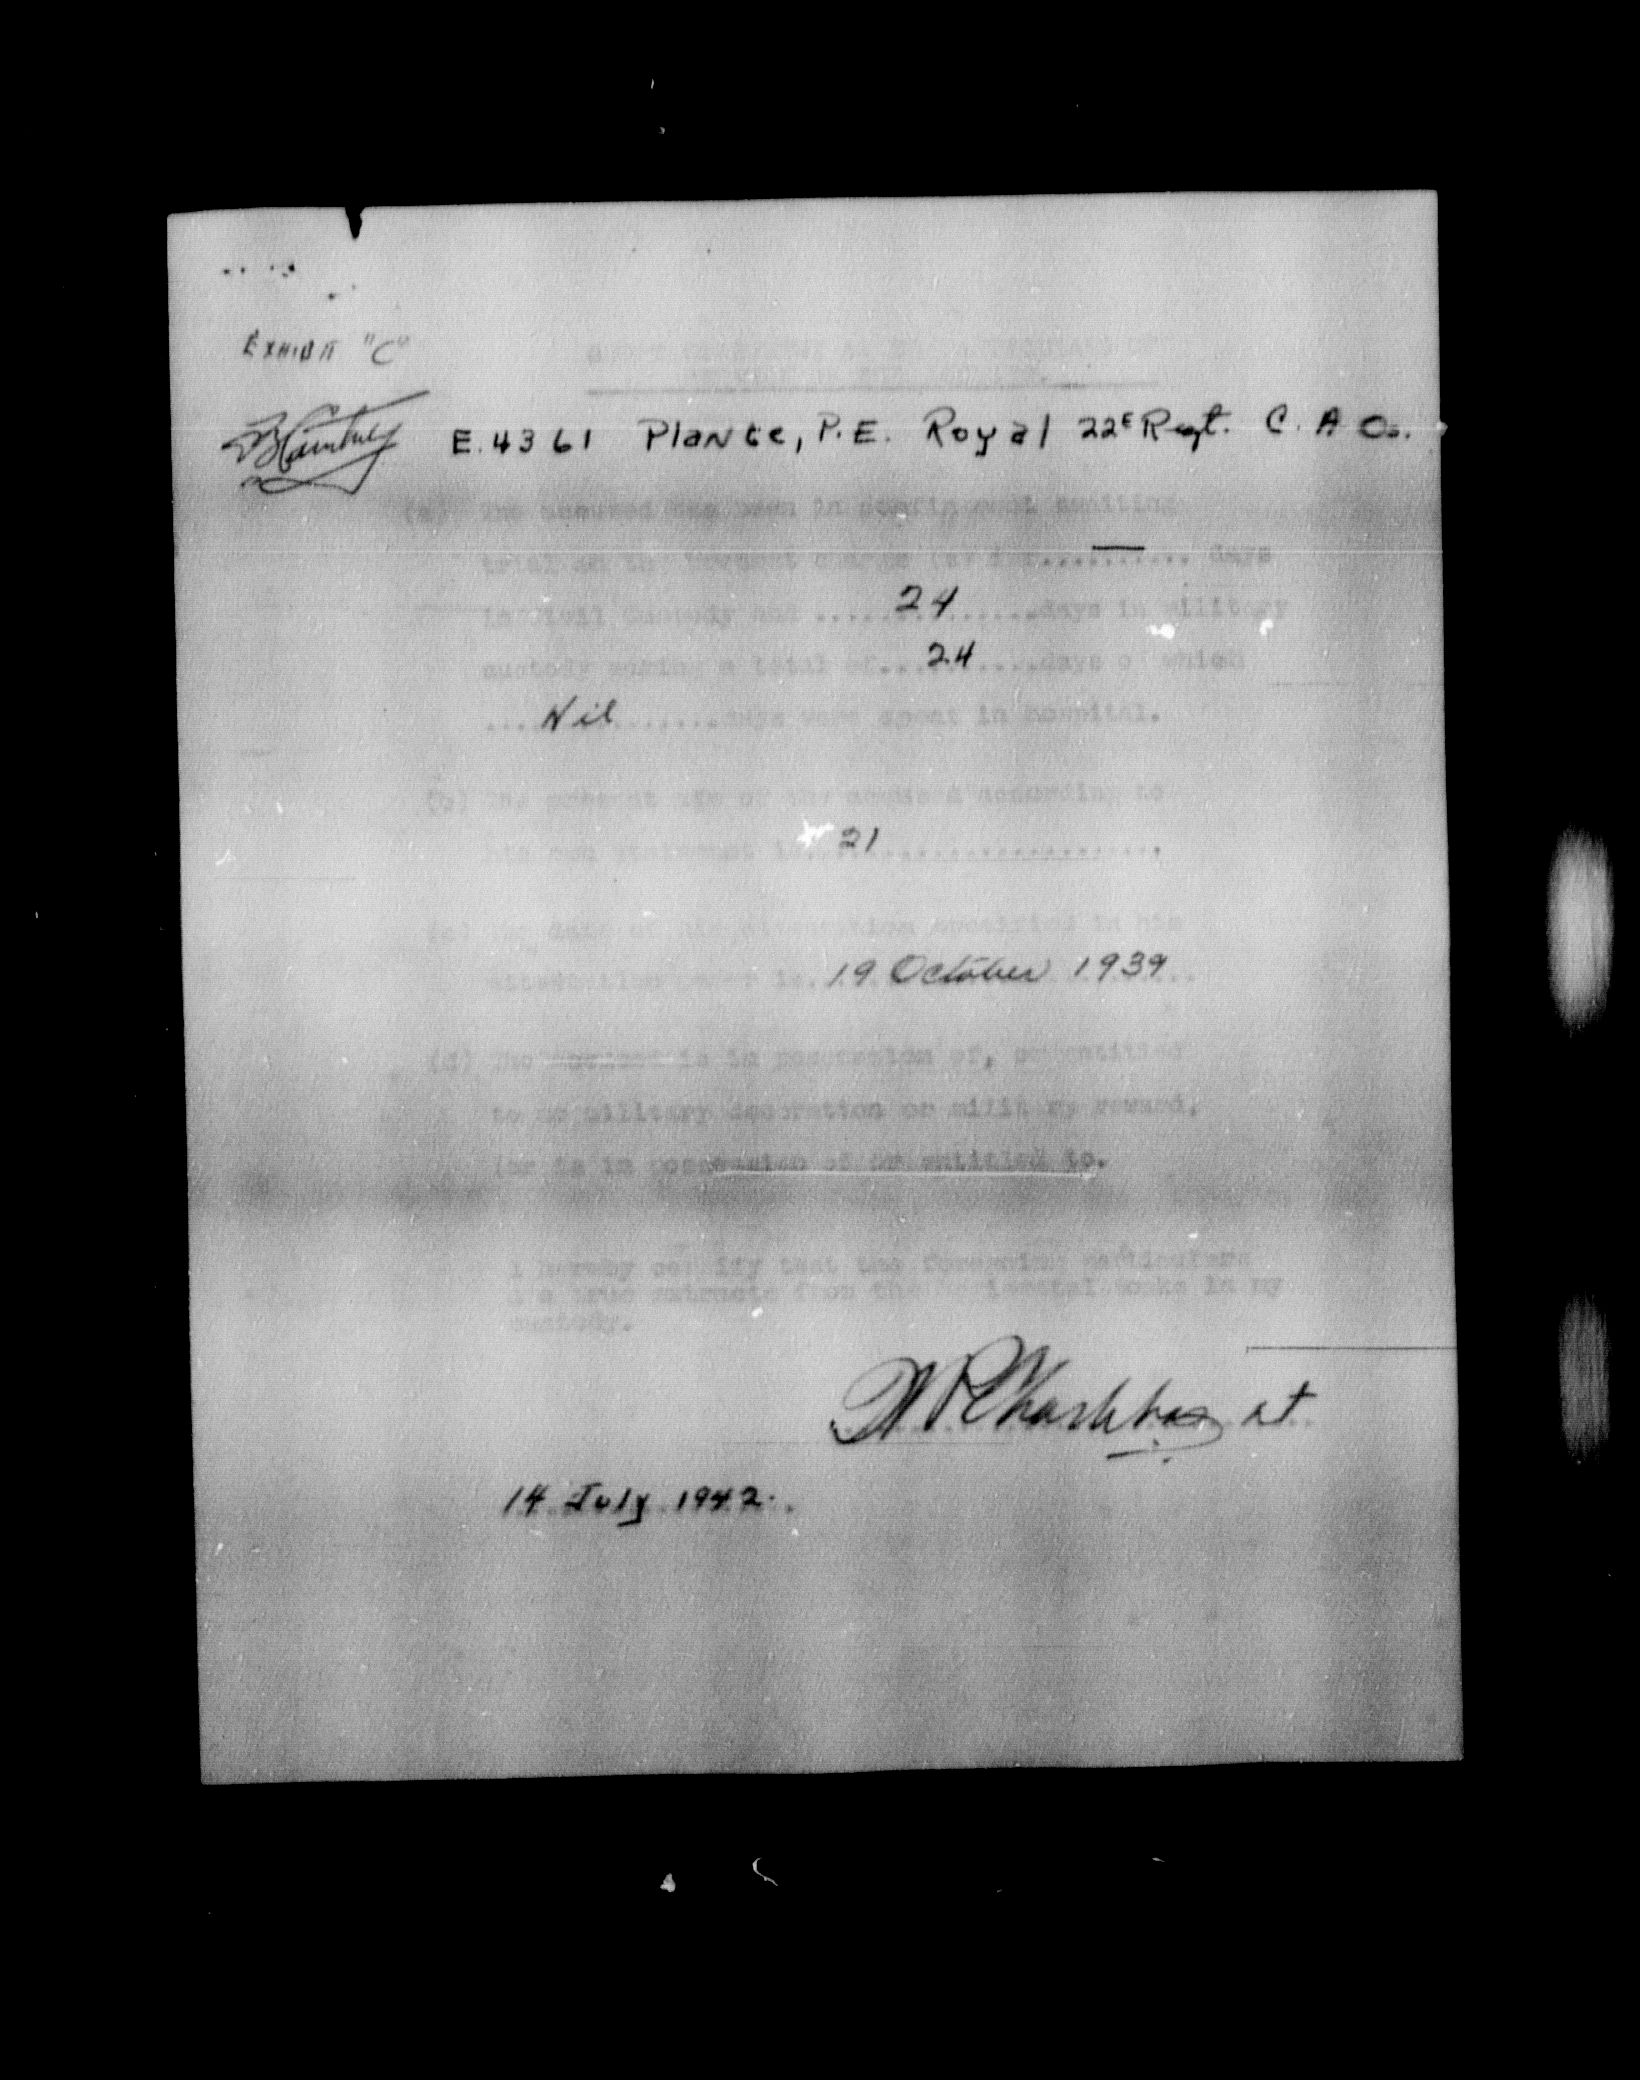 EXHIBIT "C"
E.4361 Plante, P.E. Royal 22E Regt. C. A Os.
(a) The accused has been in confinement awaiting
trial on the present charge (s) for.......... days
in civil custody and .....24.....days in military
custody making a total of...24.....days of which
....Nil.......days were spent in hospital.
(b) The present age of the accused according to
his own statement is....21....................
(c) The date of his attestation specified in his
attestation paper is..19 October 1939..
(d) The accused is in possession of, or entitled
to no military decoration or military reward,
(or is in possession of or entitled to.
I hereby certify that the foregoing particulars
are true extracts from the regimental books in my
custody.
14 July 1942.